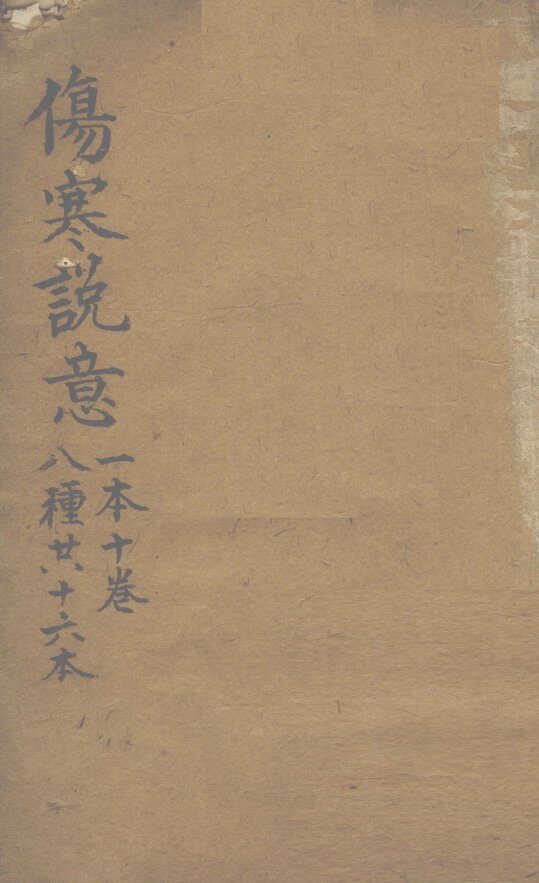 傷寒説意
一本十卷
八種共十六本